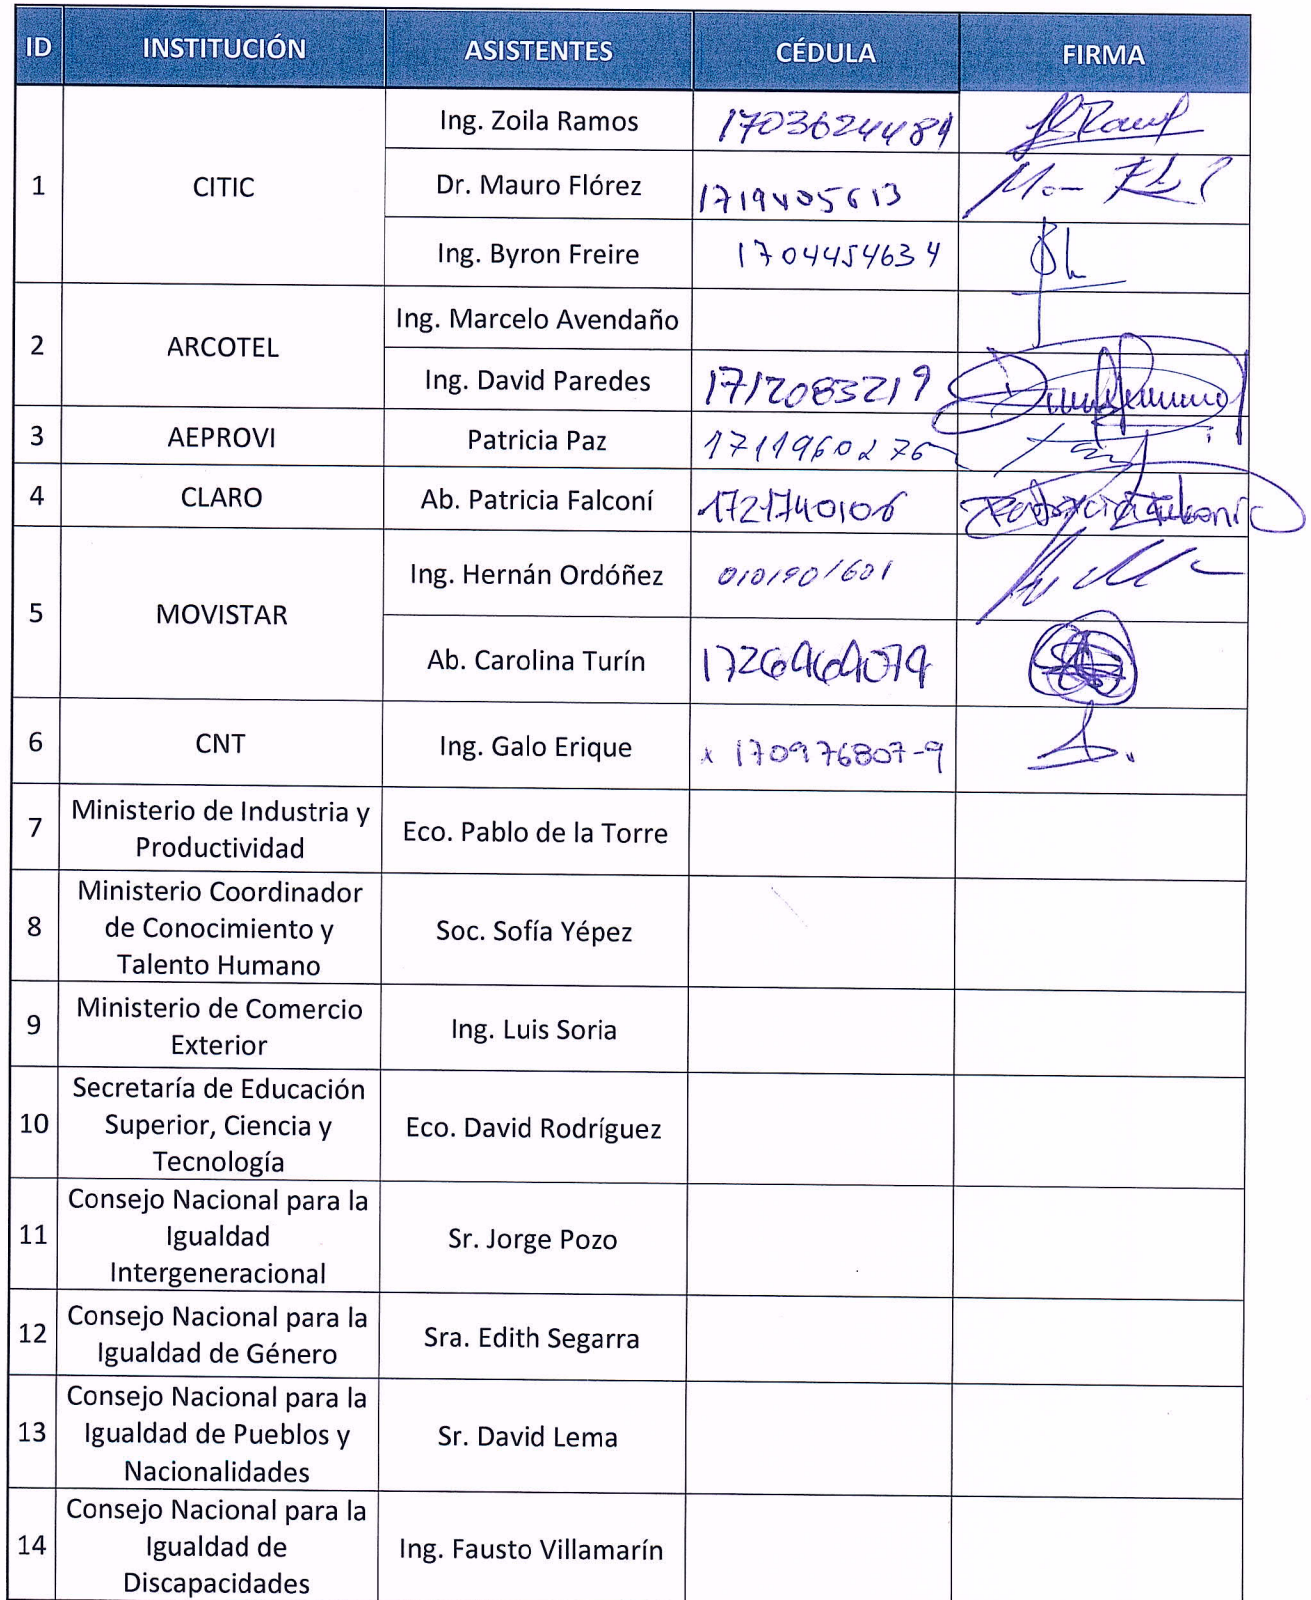 ID INSTITUCIÓN ASISTENTES CÉDULA FIRMA
1 CITIC
Ing. Zoila Ramos 1703624484
Dr. Mauro Flórez 1719405613
Ing. Byron Freire 1704454634
2 ARCOTEL
Ing. Marcelo Avendaño
Ing. David Paredes 1712083219
3 AEPROVI Patricia Paz 1711960276
4 CLARO Ab. Patricia Falconí 1721740106 Patricia Falconí
5 MOVISTAR
Ing. Hernán Ordóñez 0101901601
Ab. Carolina Turín
6 CNT Ing. Galo Erique x 170976807-9
7 Ministerio de Industria y
Productividad
Eco. Pablo de la Torre
8 Ministerio Coordinador
de Conocimiento y
Talento Humano
Soc. Sofía Yépez
9 Ministerio de Comercio
Exterior
Ing. Luis Soria
10 Secretaría de Educación
Superior, Ciencia y
Tecnología
Eco. David Rodríguez
11 Consejo Nacional para la
Igualdad
Intergeneracional
Sr. Jorge Pozo
12 Consejo Nacional para la
Igualdad de Género
Sra. Edith Segarra
13 Consejo Nacional para la
Igualdad de Pueblos y
Nacionalidades
Sr. David Lema
14 Consejo Nacional para la
Igualdad de
Discapacidades
Ing. Fausto Villamarín